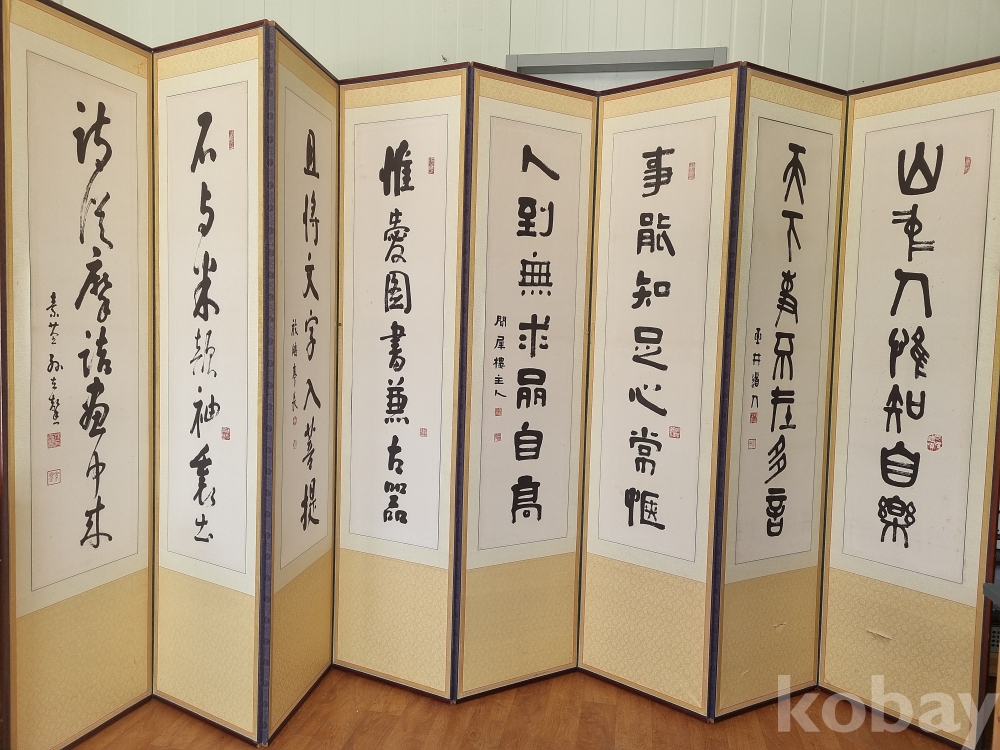 山中人惟知自樂
天下事不在多言
事能知足心常愜
人到無求品自高
樓主人
惟愛圖書兼古器
且將文字入菩提
石与米顛袖裏出
詩從摩詰畫中來
kobay